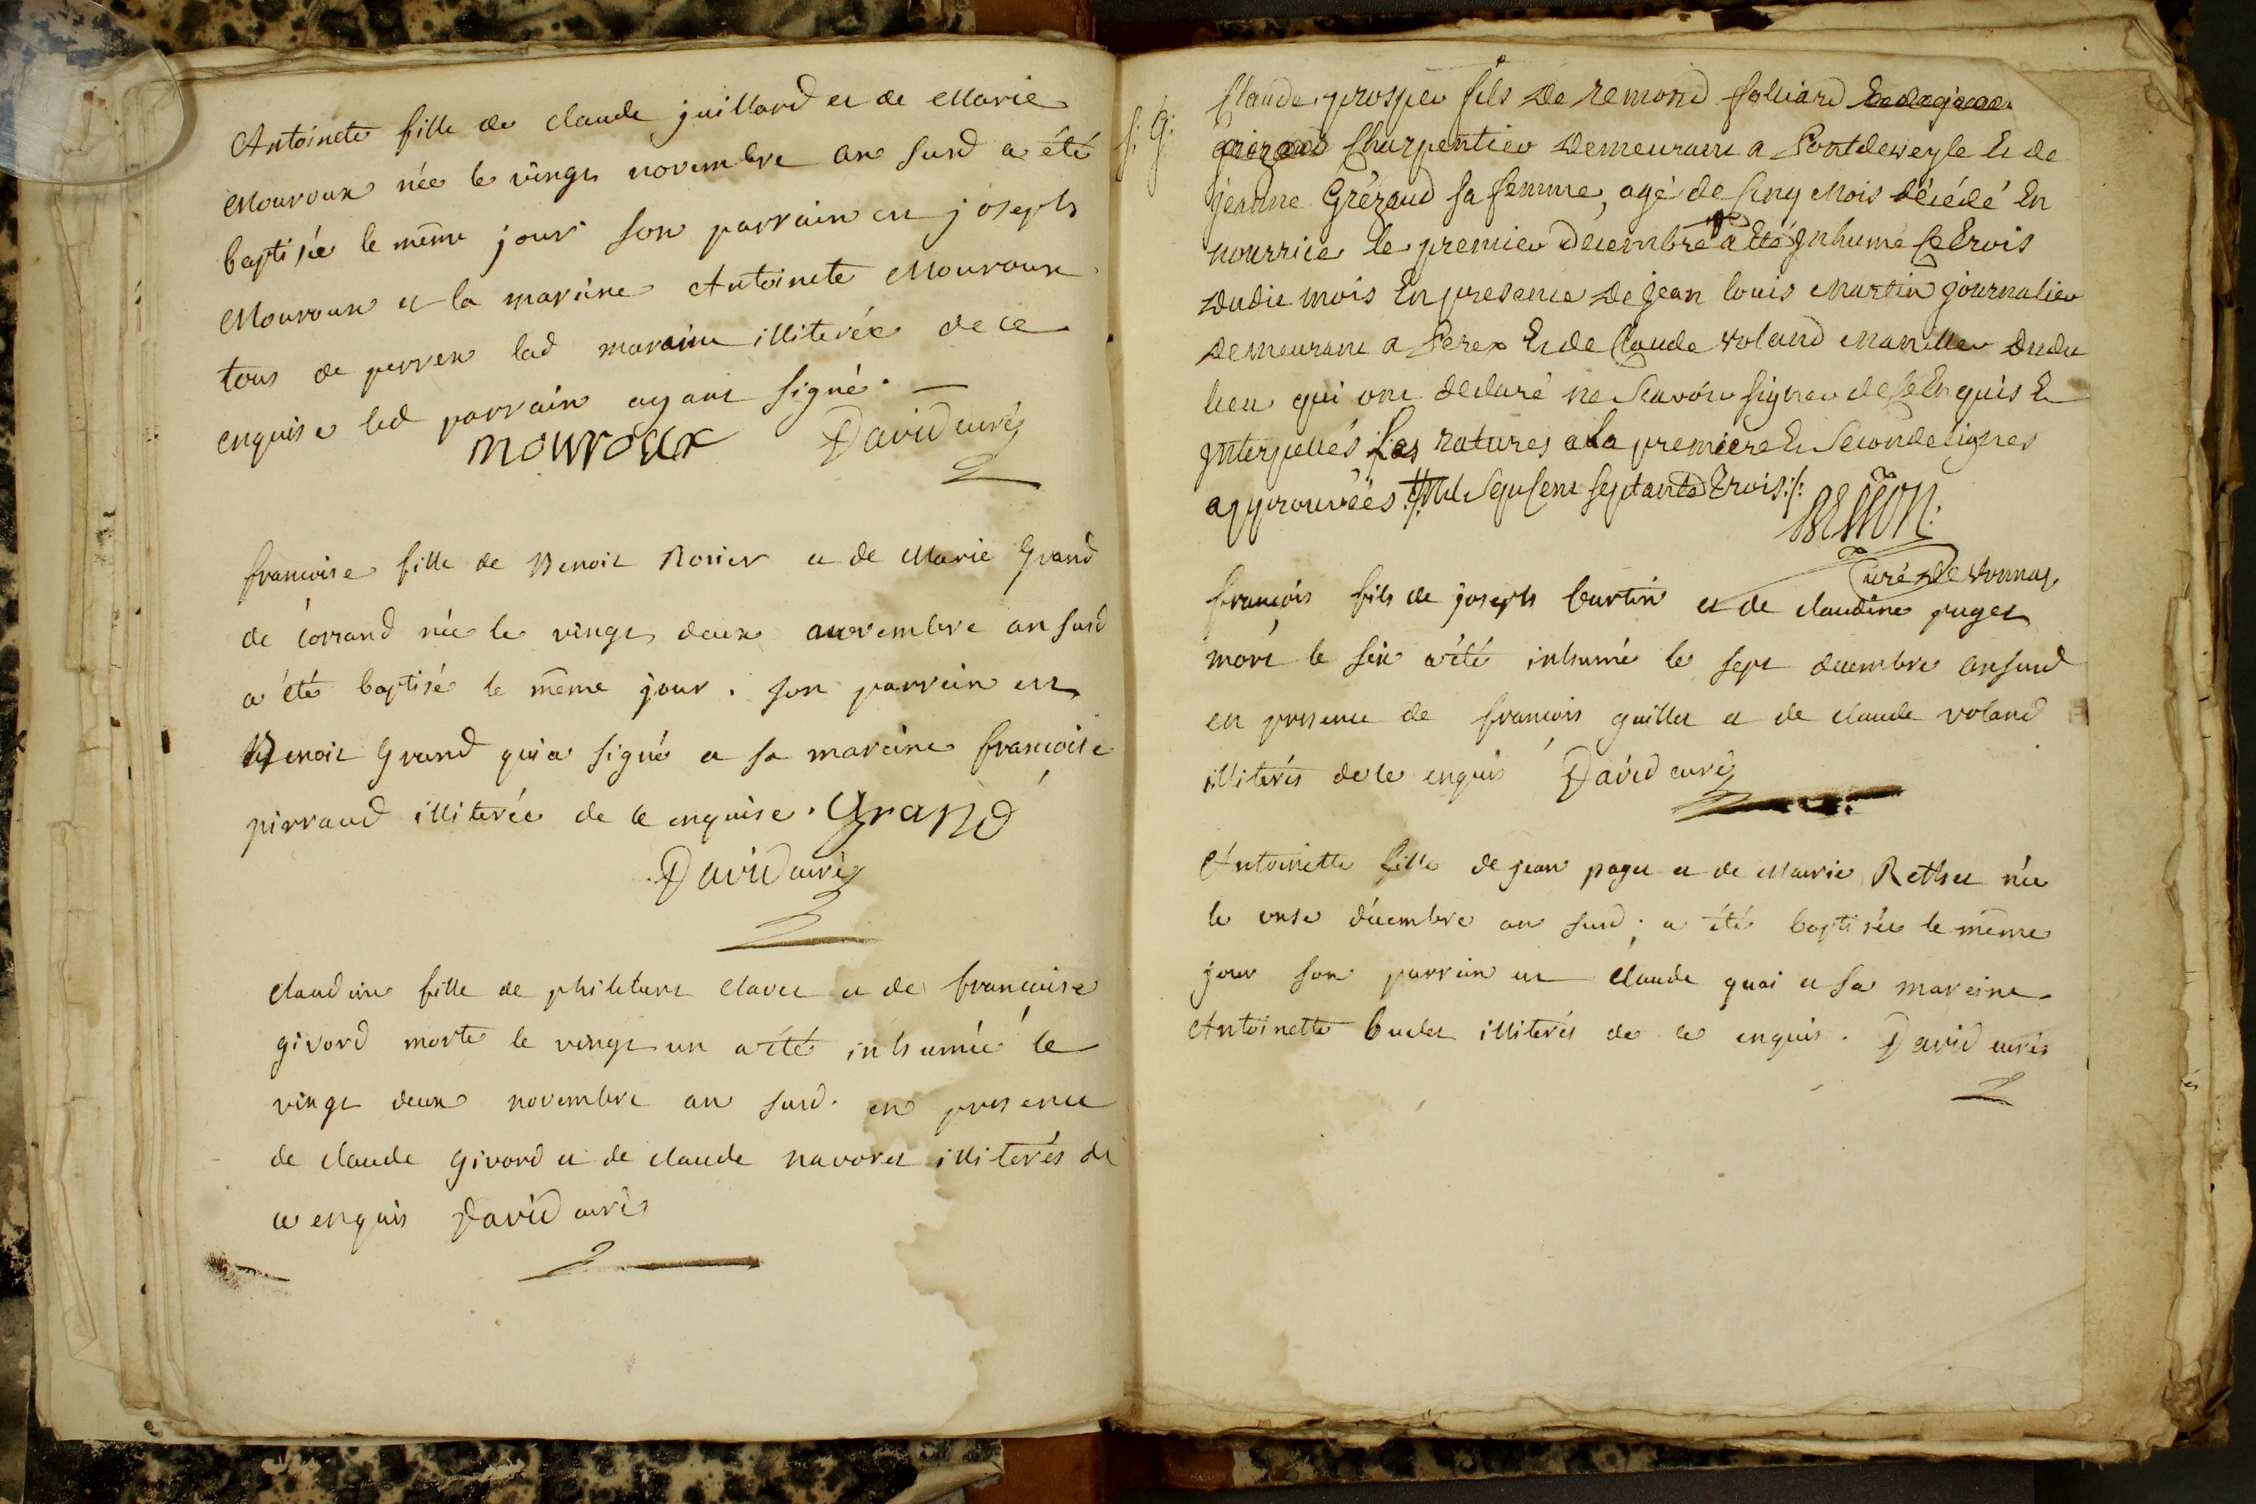 Antoinete fille de claude juillard et de Marie
Mouroux née le vingt novembre an susd a été
baptisée le même jour son parrain est joseph
Mouroux et la mareine Antoinete Mouroux
tous de perrex lad mareine illiterée de ce
enquise led parrain ayant signé.
mouroux David curé
francoise fille de Benoit Rosier et de Marie Grand
de corrand née le vingt deux novembre an susd
a été baptisé le même jour. son parrein est
Benoit Grand qui a signé et sa mareine francoise
pirraud illiterée de ce enquise. Grand
David curé
claudine fille de philibert clavet et de francoise
givord morte le vingt un a été inhumée le
vingt deux novembre an susd. en presence
de claude givord et de claude navoret illiterés de
ce enquis David curé
s: g: Claude prosper fils de remond folliard
Charpentier demeurant a Pontdeveyle Et de
jeanne Grézaud sa femme, agé de cinq Mois décédé En
nourrice le premier décembre # a Eté Inhumé le trois
dudit mois En presence de jean louis Martin journalier
demeurant a Perex Et de Claude voland Manillier dudit
lieu qui ont declaré ne Scavoir signer de ce Enquis Et
Interpellés Les ratures a la premiere Et Seconde lignes
approuvées # Mil Sept Cent Septante trois ./.
Curé de vonnas
françois fils de joseph burtin et de claudine puget
mort le six a été inhumé le sept decembre an susd
en presence de francois guillet et de claude voland
illiterés de ce enquis David curé
Antoinette fille de jean paget et de Marie Rethet née
le onse décembre an susd; a été baptisée le même
jour son parrein est claude quai et sa mareine
Antoinette budet illiterés de ce enquis. David curé